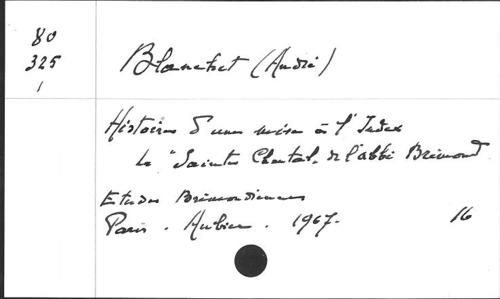 80
325
1
Blanchet (André)
Histoire d'une mise à l'Index
la "Sainte Chantal" de l'abbé Bremond
Etudes Bremondiennes
Paris. Aubier. 1967.
16